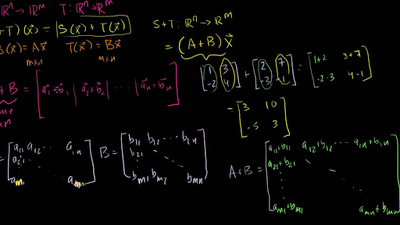 ℝⁿ → ℝᵐ T: ℝⁿ → ℝᵐ
+T)(x⃗) = S(x⃗) + T(x⃗)
S(x⃗) = Ax⃗ T(x⃗) = Bx⃗
m×n m×n
S+T: ℝⁿ → ℝᵐ
= (A+B)x⃗
+B = [a⃗₁+b⃗₁ | a⃗₂+b⃗₂ | ... | a⃗ₙ+b⃗ₙ]
[1 3 -2 4] + [2 7 -3 -1] = [1+2 3+7 -2-3 4-1]
- [3 10 -5 3]
= [a₁₁ a₁₂ ... a₁ₙ
a₂₁
aₘ₁ aₘₙ]
B = [b₁₁ b₁₂ ... b₁ₙ
b₂₁
bₘ₁ bₘ₂ bₘₙ]
A+B = [a₁₁+b₁₁ a₁₂+b₁₂ ... a₁ₙ+b₁ₙ
a₂₁+b₂₁
aₘ₁+bₘ₁ aₘₙ+bₘₙ]